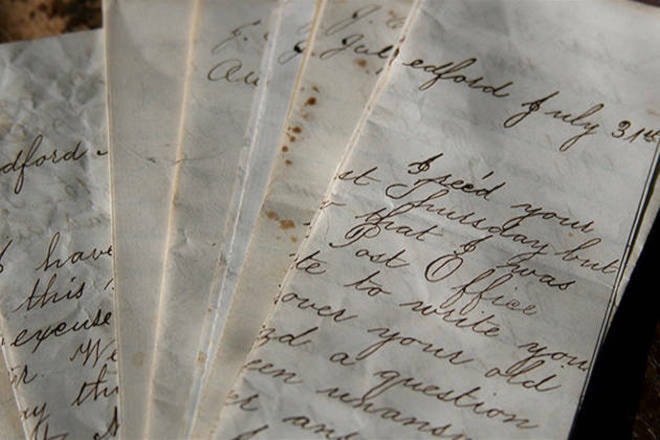 dford
have
this
excuse
We
Au
Jul
edford July 31st
I rec'd your
st Thursday but
that I was
Post Office
te to write you
over your old
a question
een unans